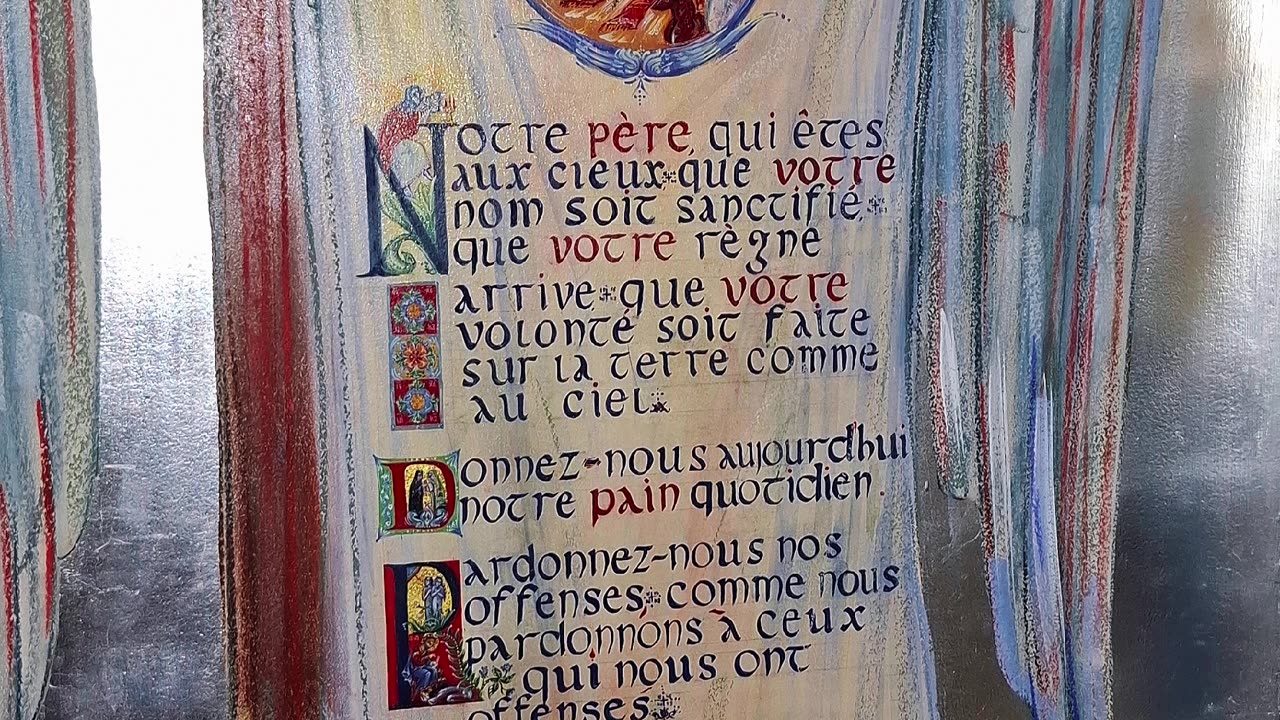 Notre père, qui êtes
aux cieux que votre
nom soit sanctifié,
que votre règne
arrive que votre
volonté soit faite
sur la terre comme
au ciel
Donnez-nous aujourd'hui
notre pain quotidien.
Pardonnez-nous nos
offenses comme nous
pardonnons à ceux
qui nous ont
offensés